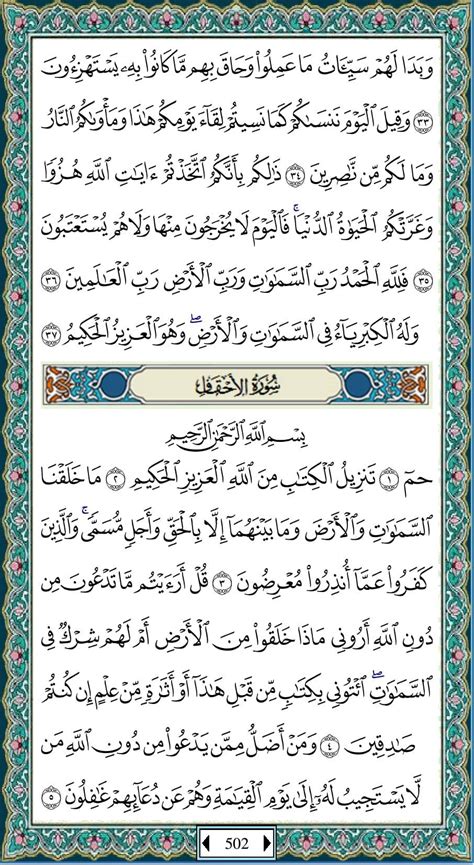 وَبَدَا لَهُمْ سَيِّـَٔاتُ مَا عَمِلُوا۟ وَحَاقَ بِهِم مَّا كَانُوا۟ بِهِۦ يَسْتَهْزِءُونَ
٣٣ وَقِيلَ ٱلْيَوْمَ نَنسَىٰكُمْ كَمَا نَسِيتُمْ لِقَآءَ يَوْمِكُمْ هَٰذَا وَمَأْوَىٰكُمُ ٱلنَّارُ
وَمَا لَكُم مِّن نَّٰصِرِينَ ٣٤ ذَٰلِكُم بِأَنَّكُمُ ٱتَّخَذْتُمْ ءَايَٰتِ ٱللَّهِ هُزُوًا
وَغَرَّتْكُمُ ٱلْحَيَوٰةُ ٱلدُّنْيَا ۚ فَٱلْيَوْمَ لَا يُخْرَجُونَ مِنْهَا وَلَا هُمْ يُسْتَعْتَبُونَ
٣٥ فَلِلَّهِ ٱلْحَمْدُ رَبِّ ٱلسَّمَٰوَٰتِ وَرَبِّ ٱلْأَرْضِ رَبِّ ٱلْعَٰلَمِينَ ٣٦
وَلَهُ ٱلْكِبْرِيَآءُ فِى ٱلسَّمَٰوَٰتِ وَٱلْأَرْضِ ۖ وَهُوَ ٱلْعَزِيزُ ٱلْحَكِيمُ ٣٧
سُورَةُ ٱلْأَحْقَافِ
بِسْمِ ٱللَّهِ ٱلرَّحْمَٰنِ ٱلرَّحِيمِ
حمٓ ١ تَنزِيلُ ٱلْكِتَٰبِ مِنَ ٱللَّهِ ٱلْعَزِيزِ ٱلْحَكِيمِ ٢ مَا خَلَقْنَا
ٱلسَّمَٰوَٰتِ وَٱلْأَرْضَ وَمَا بَيْنَهُمَآ إِلَّا بِٱلْحَقِّ وَأَجَلٍ مُّسَمًّى ۚ وَٱلَّذِينَ
كَفَرُوا۟ عَمَّآ أُنذِرُوا۟ مُعْرِضُونَ ٣ قُلْ أَرَءَيْتُم مَّا تَدْعُونَ مِن
دُونِ ٱللَّهِ أَرُونِى مَاذَا خَلَقُوا۟ مِنَ ٱلْأَرْضِ أَمْ لَهُمْ شِرْكٌ فِى
ٱلسَّمَٰوَٰتِ ۖ ٱئْتُونِى بِكِتَٰبٍ مِّن قَبْلِ هَٰذَآ أَوْ أَثَٰرَةٍ مِّنْ عِلْمٍ إِن كُنتُمْ
صَٰدِقِينَ ٤ وَمَنْ أَضَلُّ مِمَّن يَدْعُوا۟ مِن دُونِ ٱللَّهِ مَن
لَّا يَسْتَجِيبُ لَهُۥٓ إِلَىٰ يَوْمِ ٱلْقِيَٰمَةِ وَهُمْ عَن دُعَآئِهِمْ غَٰفِلُونَ ٥
502